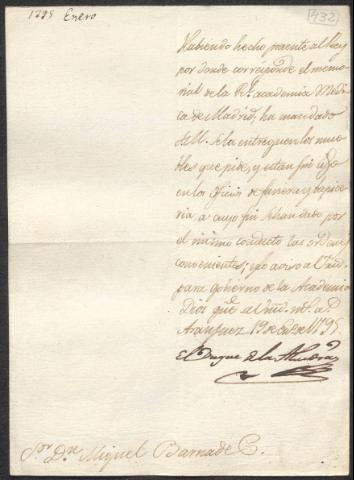 1795 Enero
432
Habiendo hecho presente al Rey
por donde corresponde el memo-
rial de la Rl. academia Medi-
ca de Madrid, ha mandado
S.M. se la entreguen los mue-
bles que pide, y estan sin uso
en los Oficios de furriera y tapice-
ria a cuyo fin se han dado por
el mismo conducto las ordenes
convenientes; y lo aviso a Vmd.
para gobierno de la Academia
Dios gue. a Vmd. ms. as.
Aranjuez 19 de de 1795
El Duque de la Alcudia
Sor. Dn. Miguel Barnades.